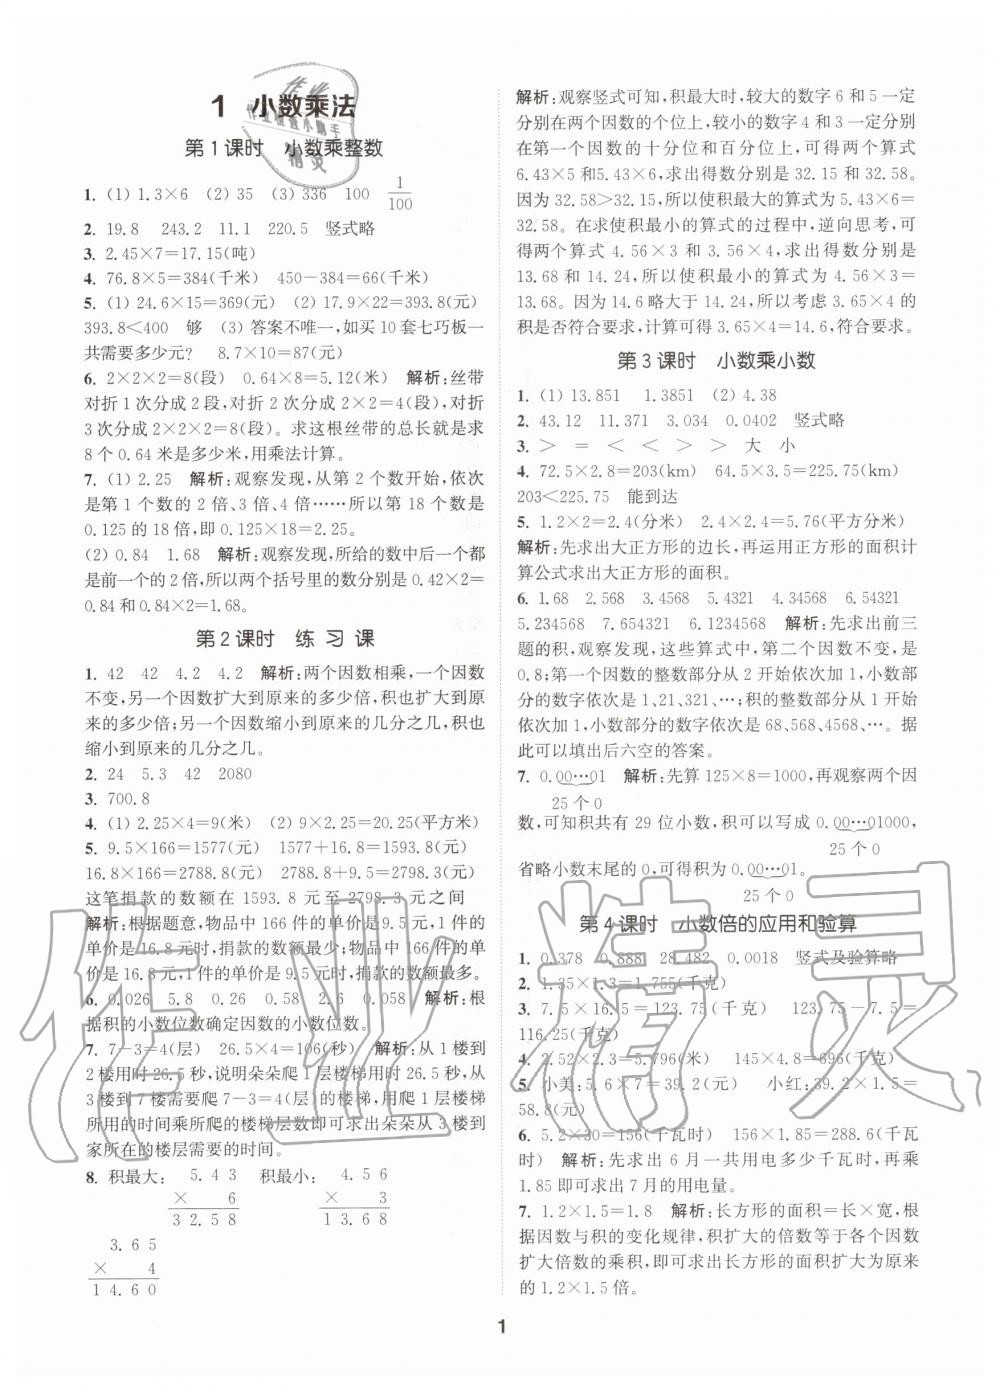 1 小数乘法
第1课时 小数乘整数
1. (1) 1.3×6 (2) 35 (3) 336 100 1/100
2. 19.8 243.2 11.1 220.5 竖式略
3. 2.45×7=17.15(吨)
4. 76.8×5=384(千米) 450-384=66(千米)
5. (1) 24.6×15=369(元) (2) 17.9×22=393.8(元)
393.8<400 够 (3) 答案不唯一,如买10套七巧板一
共需要多少元? 8.7×10=87(元)
6. 2×2×2=8(段) 0.64×8=5.12(米) 解析:丝带
对折1次分成2段,对折2次分成2×2=4(段),对折
3次分成2×2×2=8(段)。求这根丝带的总长就是求
8个0.64米是多少米,用乘法计算。
7. (1) 2.25 解析:观察发现,从第2个数开始,依次
是第1个数的2倍、3倍、4倍……所以第18个数是
0.125的18倍,即0.125×18=2.25。
(2) 0.84 1.68 解析:观察发现,所给的数中后一个都
是前一个的2倍,所以两个括号里的数分别是0.42×2=
0.84和0.84×2=1.68。
第2课时 练习课
1. 42 42 4.2 4.2 解析:两个因数相乘,一个因数
不变,另一个因数扩大到原来的多少倍,积也扩大到原
来的多少倍;另一个因数缩小到原来的几分之几,积也
缩小到原来的几分之几。
2. 24 5.3 42 2080
3. 700.8
4. (1) 2.25×4=9(米) (2) 9×2.25=20.25(平方米)
5. 9.5×166=1577(元) 1577+16.8=1593.8(元)
16.8×166=2788.8(元) 2788.8+9.5=2798.3(元)
这笔捐款的数额在1593.8元至2798.3元之间
解析:根据题意,物品中166件的单价是9.5元,1件的
单价是16.8元时,捐款的数额最少;166件的单价是
16.8元,1件的单价是9.5元时,捐款的数额最多。
6. 0.026 5.8 0.26 2.6 0.058 解析:根
据积的小数位数确定因数的小数位数。
7. 7-3=4(层) 26.5×4=106(秒) 解析:从1楼到
2楼用时26.5秒,说明朵朵爬1层楼梯用时26.5秒,
从3楼到7楼需爬7-3=4(层)的楼梯,用爬1层楼梯
所用的时间乘所爬的楼梯层数即可求出朵朵从3楼到
家所在的楼层需要的时间。
8. 积最大: 5.43 积最小: 4.56
× 6 × 3
32.58 13.68
3.65
× 4
14.60
解析:观察竖式可知,积最大时,较大的数字6和5一定
分别在两个因数的个位上,较小的数字4和3一定分别
在第一个因数的十分位和百分位上,可得两个算式
6.43×5和5.43×6,求出得数分别是32.15和32.58。
因为32.58>32.15,所以使积最大的算式是5.43×6=
32.58。在求使积最小的算式的过程中,逆向思考,可
得两个算式4.56×3和3.56×4,求出得数分别是
13.68和14.24,所以使积最小的算式是4.56×3=
13.68。因为14.6略大于14.24,所以考虑3.65×4的
积是否符合要求,计算可得3.65×4=14.6,符合要求。
第3课时 小数乘小数
1. (1) 13.851 1.3851 (2) 4.38
2. 43.12 11.371 3.034 0.0402 竖式略
3. > = < < > > 大 小
4. 72.5×2.8=203(km) 64.5×3.5=225.75(km)
203<225.75 能到达
5. 1.2×2=2.4(分米) 2.4×2.4=5.76(平方分米)
解析:先求出大正方形的边长,再运用正方形的面积计
算公式求出大正方形的面积。
6. 1.68 2.568 3.4568 4.34568 6.54321
5.234568 7.654321 6.1234568 解析:先求出前三
题的积,观察发现,这些算式中,第二个因数不变,是
0.8;第一个因数的整数部分从2开始依次加1,小数部
分的数字依次是1、21、321、…;积的整数部分从1开始
依次加1,小数部分的数字依次是68、568、4568、…。据
此可以填出后六空的答案。
7. 0.00…01 解析:先算125×8=1000,再观察两个因
25个0
数,可知积共有29位小数,积可以写成0.00…01000,
25个0
省略小数末尾的0,可得积为0.00…01。
25个0
第4课时 小数倍的应用和验算
1. 0.378 0.888 28.482 0.0018 竖式及验算略
2. 1.35×1.3=1.755(千克)
3. 7.5×16.5=123.75(千克) 123.75-7.5=
116.25(千克)
4. 2.52×2.3=5.796(米) 145×4.8=696(千克)
5. 小美:5.6×7=39.2(元) 小红:39.2×1.5=
58.8(元)
6. 5.2×30=156(千瓦时) 156×1.85=288.6(千瓦
时) 解析:先求出6月一共用电多少千瓦时,再乘
1.85即可求出7月的用电量。
7. 1.2×1.5=1.8 解析:长方形的面积=长×宽,根
据因数与积的变化规律,积扩大的倍数等于各个因数
扩大倍数的乘积,即可求出长方形的面积扩大到原来
的1.2×1.5倍。
1
作业精灵